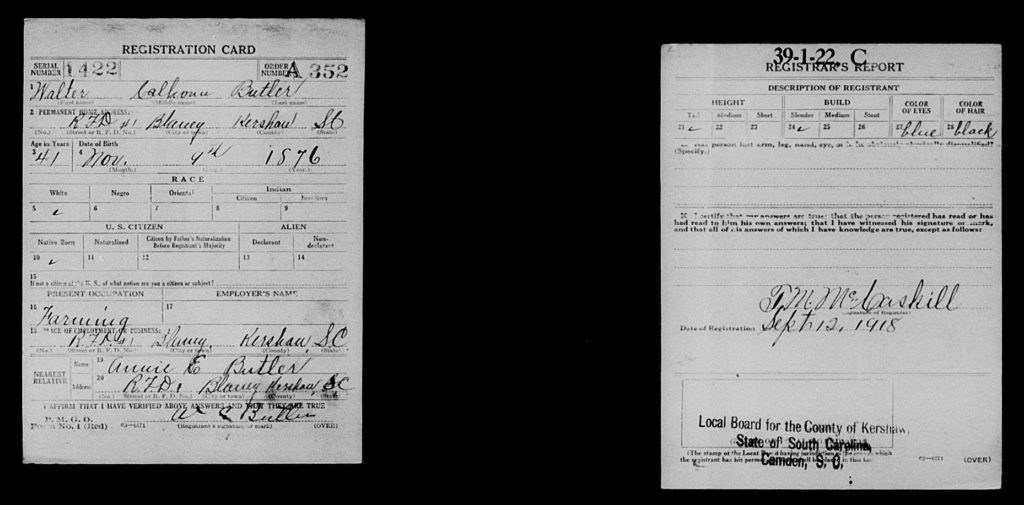 REGISTRATION CARD
SERIAL NUMBER 1422 ORDER NUMBER A 352
1 Walter Calhoun Butler
(First name) (Middle name) (Last name)
2 PERMANENT HOME ADDRESS:
R.F.D. #1 Blaney Kershaw SC
(No.) (Street or R. F. D. No.) (City or town) (County) (State)
Age in Years Date of Birth
3 41 4 Nov. 9th 1876
(Month.) (Day.) (Year.)
RACE
White Negro Oriental Indian
Citizen
5 ✓ 6 7 8 9
U. S. CITIZEN ALIEN
Native Born Naturalized Citizen by Father's Naturalization Before Registrant's Majority Declarant Non-declarant
10 ✓ 11 12 13 14
15
If not a citizen of the U. S., of what nation are you a citizen or subject?
PRESENT OCCUPATION EMPLOYER'S NAME
16 Farming 17
18 PLACE OF EMPLOYMENT OR BUSINESS:
R.F.D. #1 Blaney, Kershaw, S.C
(No.) (Street or R. F. D. No.) (City or town) (County) (State)
NEAREST RELATIVE Name 19 Annie E Butler
Address 20 R.F.D. 1 Blaney Kershaw, SC
(No.) (Street or R. F. D. No.) (City or town) (County) (State)
I AFFIRM THAT I HAVE VERIFIED ABOVE ANSWERS AND THAT THEY ARE TRUE
P. M. G. O.
Form No. 1 (Red) 03—6171 (Registrant's signature or mark) (OVER)
W C Butler
39-1-22. C
REGISTRAR'S REPORT
DESCRIPTION OF REGISTRANT
HEIGHT BUILD COLOR OF EYES COLOR OF HAIR
Tall Medium Short Slender Medium Stout
21 ✓ 22 23 24 ✓ 25 26 27 blue 28 black
29 Has person lost arm, leg, hand, eye, or is he obviously physically disqualified?
(Specify.)
30 I certify that my answers are true; that the person registered has read or has
had read to him his own answers; that I have witnessed his signature or mark,
and that all of his answers of which I have knowledge are true, except as follows:
T.M. McCaskill
(Signature of Registrar)
Date of Registration Sept 12, 1918
Local Board for the County of Kershaw,
State of South Carolina,
Camden, S. C.
(The stamp of the Local Board having jurisdiction of the area in which
the registrant has his permanent home shall be placed in this box.)
03—6171 (OVER)